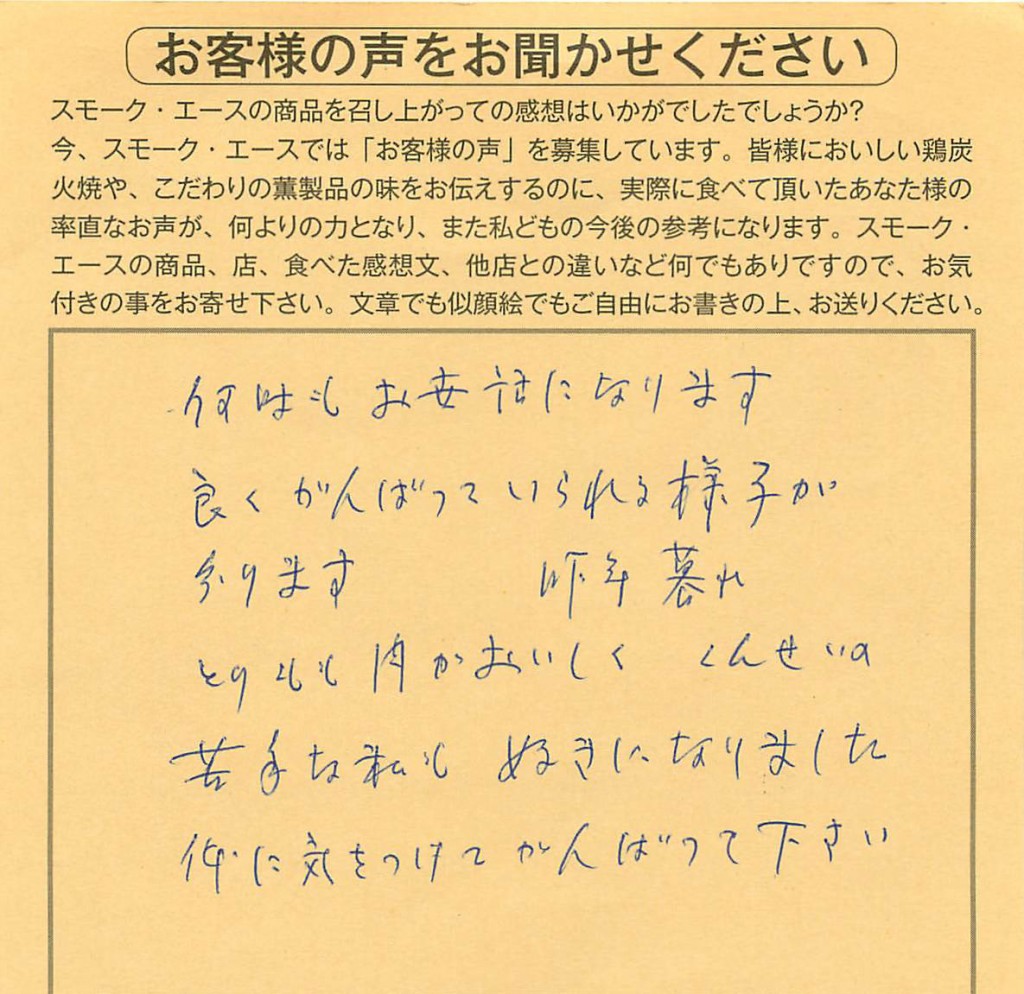 お客様の声をお聞かせください
スモーク・エースの商品を召し上がっての感想はいかがでしたでしょうか?
今、スモーク・エースでは「お客様の声」を募集しています。皆様においしい鶏炭
火焼や、こだわりの薫製品の味をお伝えするのに、実際に食べて頂いたあなた様の
率直なお声が、何よりの力となり、また私どもの今後の参考になります。スモーク・
エースの商品、店、食べた感想文、他店との違いなど何でもありですので、お気
付きの事をお寄せ下さい。文章でも似顔絵でもご自由にお書きの上、お送りください。
何時も お世話になります
良く がんばって いられる 様子が
分ります 昨年 暮れ
とりもも 肉が おいしく くんせいの
苦手な私も 好きに なりました
体に 気をつけて がんばって 下さい